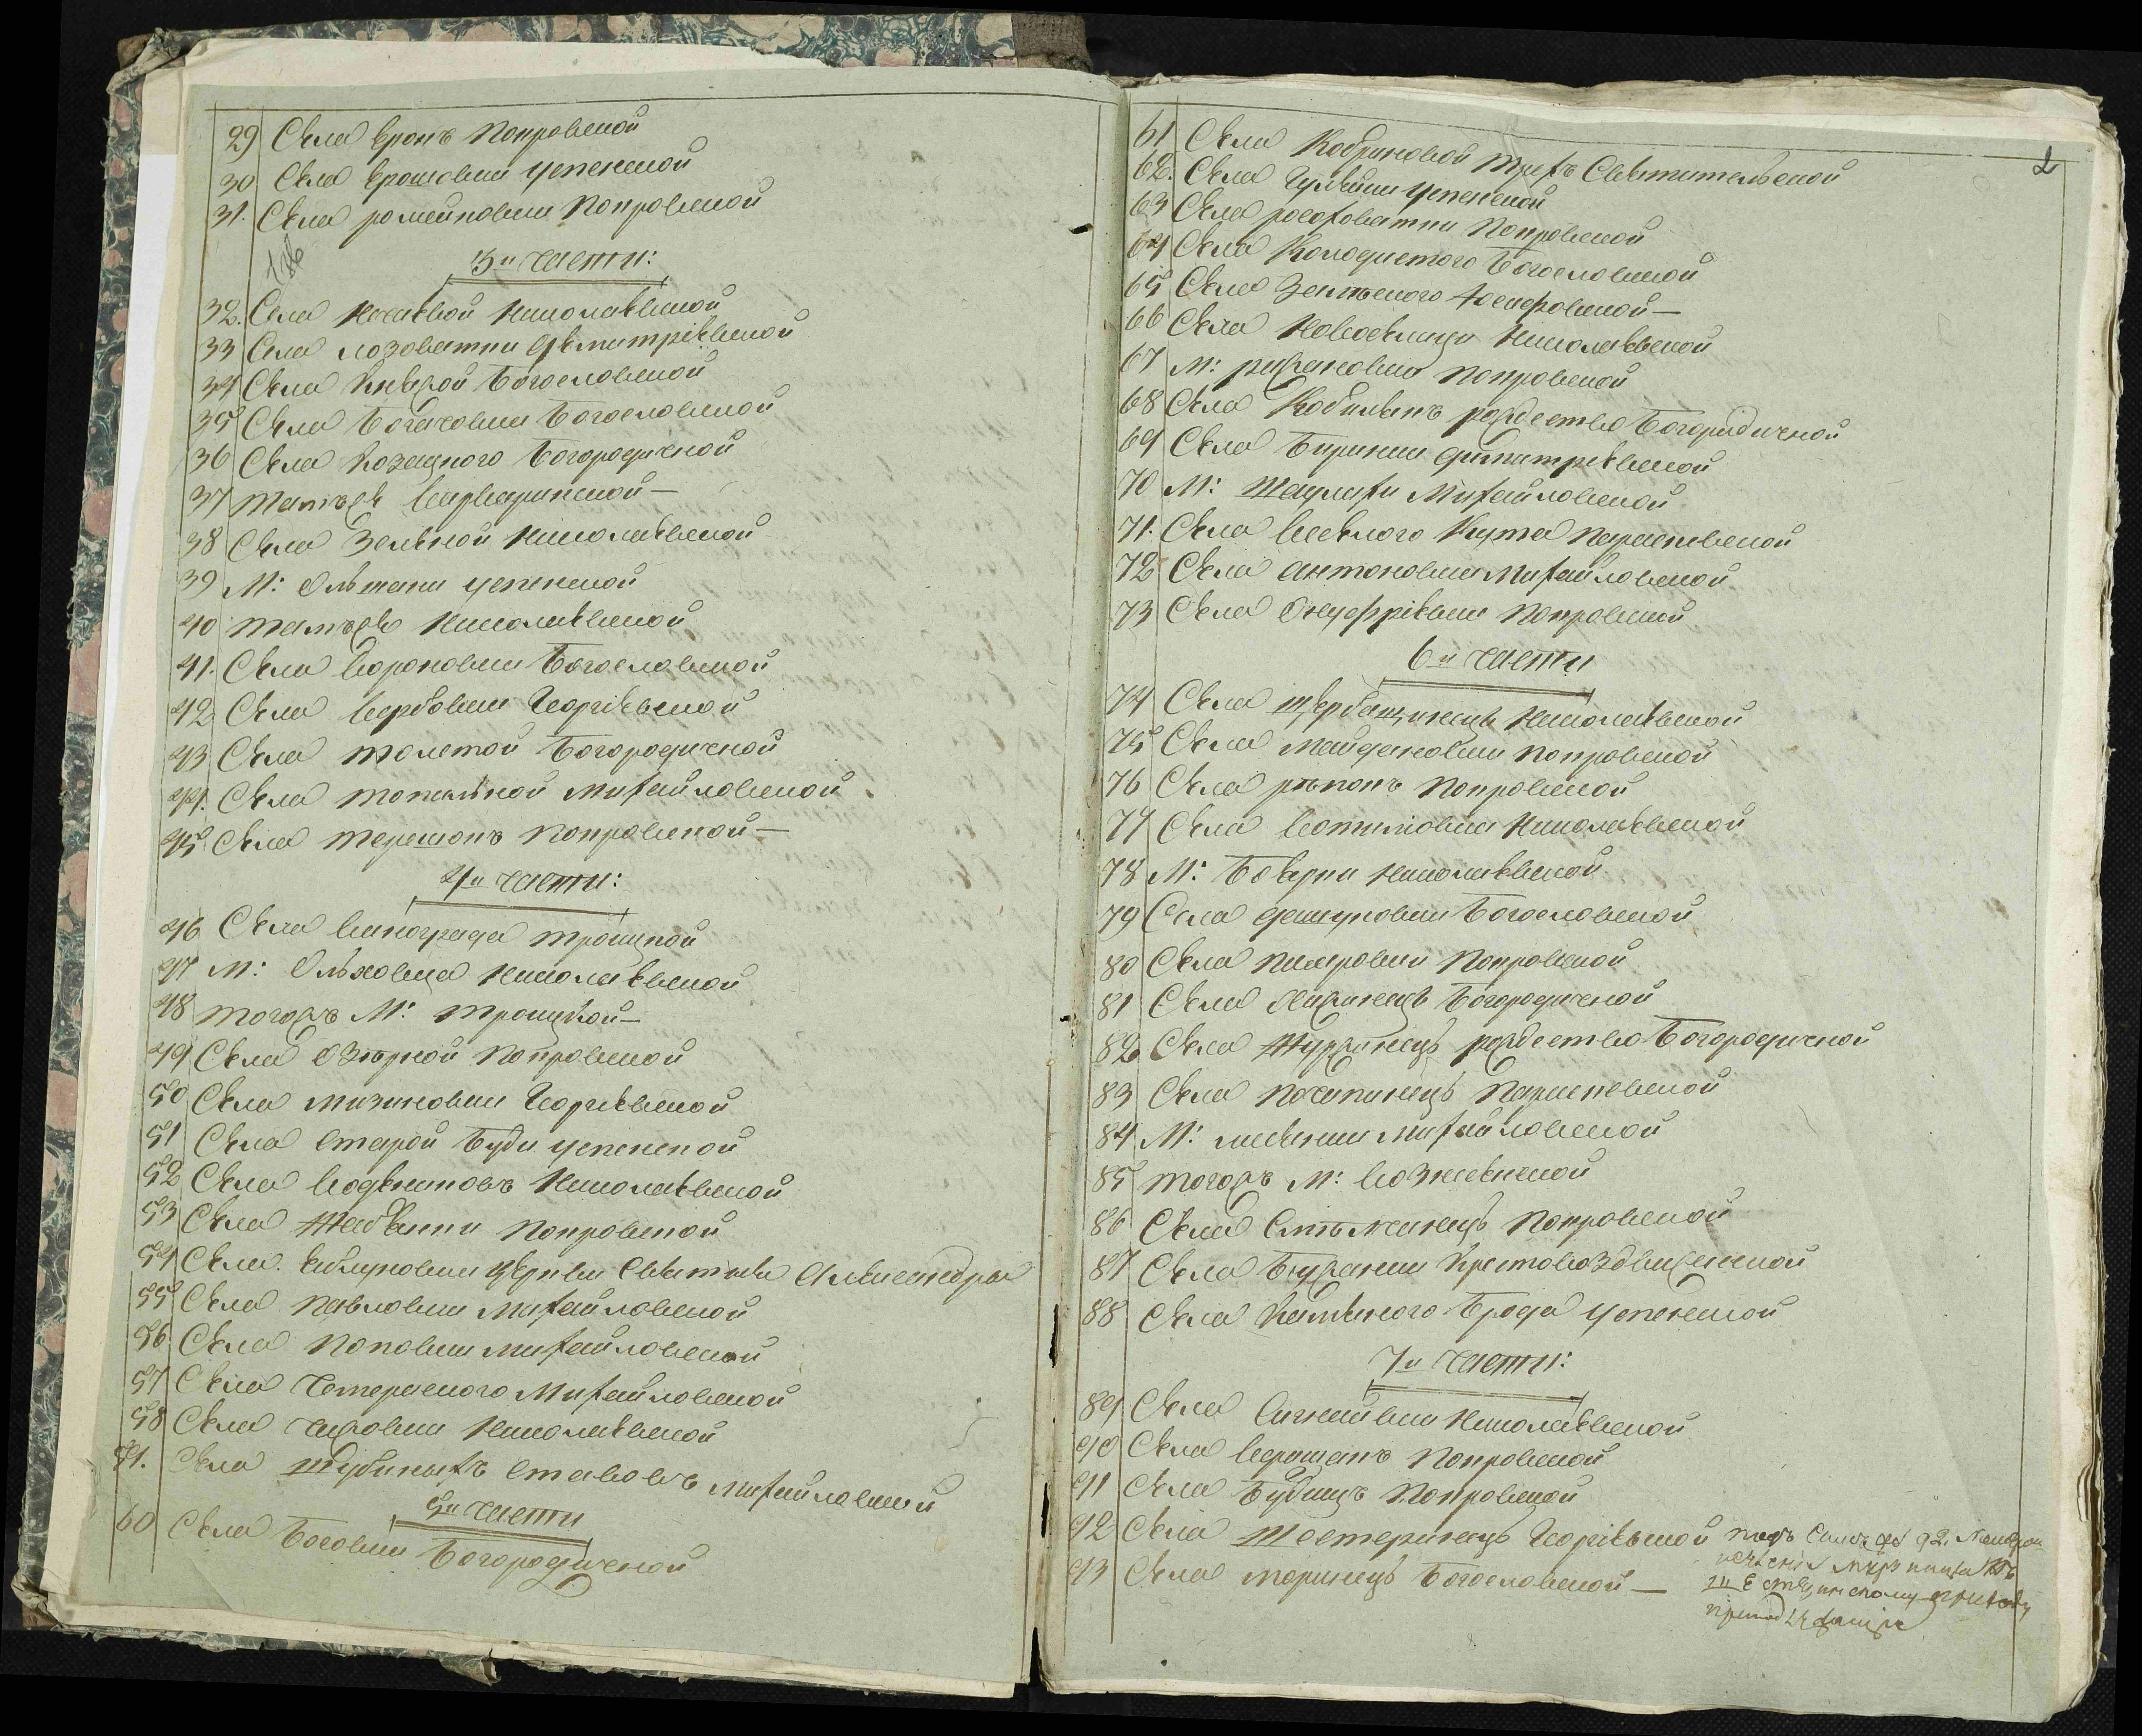 29 Села Ерокъ Покровской
30 Села Ерошовки Успенской
31. Села ромейковки Покровской
3й части:
32. Села Нечаевой Николаевской
33 Села лозоватки Дѣмитріевской
34 Села Княжой Богословской
35 Села Богачовки Богословской
36 Села Козацкого Богородичной
37 тамъжъ Варваринской—
38 Села Зеленой Николаевской
39 М: Ольшани успенской
40 тамъже Николаевской
41. Села Вороновки Богословской
42 Села Вербовки Георгіевской
43 Села толстой Богородичной
44. Села топильной Михайловской
45 Села терешокъ Покровской—
4й части:
46 Села Винограда троицкой
47 М: Ольховца Николаевской
48 тогожъ М: троицкой—
49 Села Озѣрной Покровской
50 Села мизиновки Георгіевской
51 Села Старой Буди успенской
52 Села Водяниковъ Николаевской
53 Села Жабянки Покровской
54 Села Еблуновки церкви Святыя Александры
55 Села Павловки Михайловской
56 Села Поповки Михайловской
57 Села Чемериского Михайловской
58 Села чижовки Николаевской
51. Села Шубиныхъ Ставовъ михайловской
5й части
60 Села Босовки Богородичной
2
61 Села Кобриновой трехъ Святительской
62. Села Гулайки успенской
63 Села росоховатки Покровской
64 Села Колодистого Богословской
65 Села Зеленского Іосифовской—
66 Села Новоселици Николаевской
67 М: рижановки Покровской
68 Села Кобилякъ рождество Богородичной
69 Села Буринки Димитріевской
70 М: Шаулихи Михайловской
71. Села Веселого Кута Параскевской
72 Села антоновки Михайловской
73 Села Онуфріевки Покровской
6й части
74 Села щербашинецъ Николаевской
75 Села Майдановки покровской
76 Села рѣпокъ Покровской
77 Села Вотилювки Николаевской
78 М: Боярки Николаевской
79 Села дашуковки Богословской
80 Села Писаровки Покровской
81 Села Хижинецъ Богородичной
82 Села Журжинецъ рождество Богородичной
83 Села Почапинецъ Параскевской
84 М: лисянки Михайловской
85 тогожъ М: Вознесенской
86 Села Смѣлчинецъ Покровской
87 Села Бужанки Крестовоздвиженской
88 Села Каменного Брода успенской
7й части:
89 Села Сигнаевки Николаевской
90 Села Ерошекъ Покровской
91 Села Будищъ Покровской
92 Села Шостеринецъ Георгіевской
93 Села моринецъ Богословской—